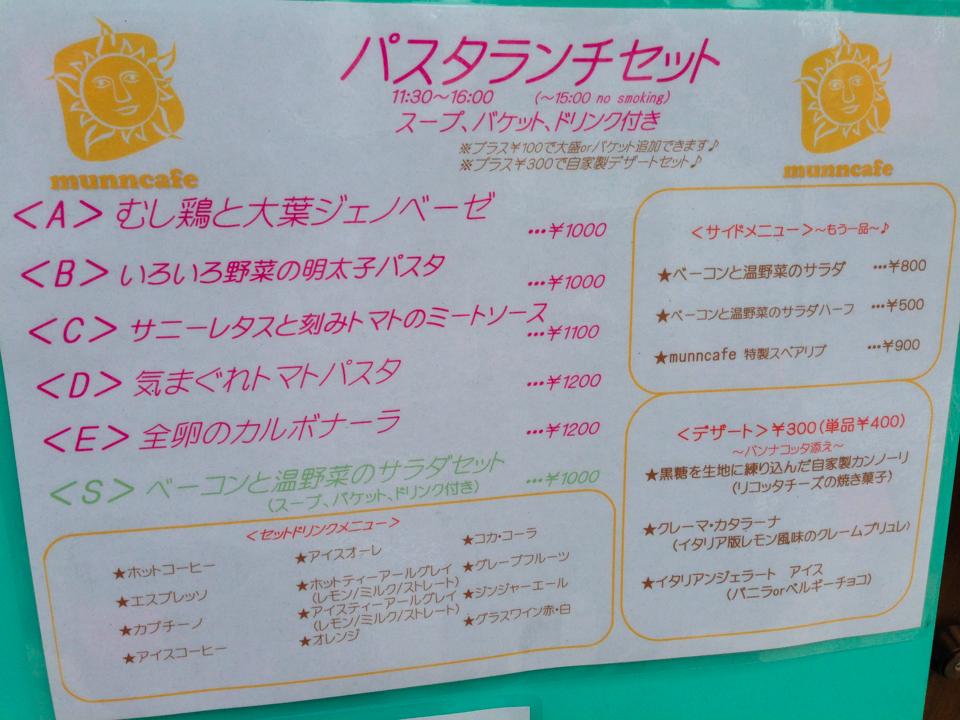 パスタランチセット
11:30～16:00 (～15:00 no smoking)
スープ、バケット、ドリンク付き
※プラス¥100で大盛orバケット追加できます♪
※プラス¥300で自家製デザートセット♪
munncafe
munncafe
＜A＞むし鶏と大葉ジェノベーゼ
…¥1000
＜B＞いろいろ野菜の明太子パスタ
…¥1000
＜C＞サニーレタスと刻みトマトのミートソース
…¥1100
＜D＞気まぐれトマトパスタ
…¥1200
＜E＞全卵のカルボナーラ
…¥1200
＜S＞ベーコンと温野菜のサラダセット
(スープ、バケット、ドリンク付き)
…¥1000
＜サイドメニュー＞～もう一品～♪
★ベーコンと温野菜のサラダ …¥800
★ベーコンと温野菜のサラダハーフ …¥500
★munncafe 特製スペアリブ …¥900
＜デザート＞¥300(単品¥400)
～パンナコッタ添え～
★黒糖を生地に練り込んだ自家製カンノーリ
(リコッタチーズの焼き菓子)
★クレーマ・カタラーナ
(イタリア版レモン風味のクレームブリュレ)
★イタリアンジェラート アイス
(バニラorベルギーチョコ)
＜セットドリンクメニュー＞
★ホットコーヒー
★エスプレッソ
★カプチーノ
★アイスコーヒー
★アイスオーレ
★ホットティーアールグレイ
(レモン/ミルク/ストレート)
★アイスティーアールグレイ
(レモン/ミルク/ストレート)
★オレンジ
★コカ・コーラ
★グレープフルーツ
★ジンジャーエール
★グラスワイン赤・白